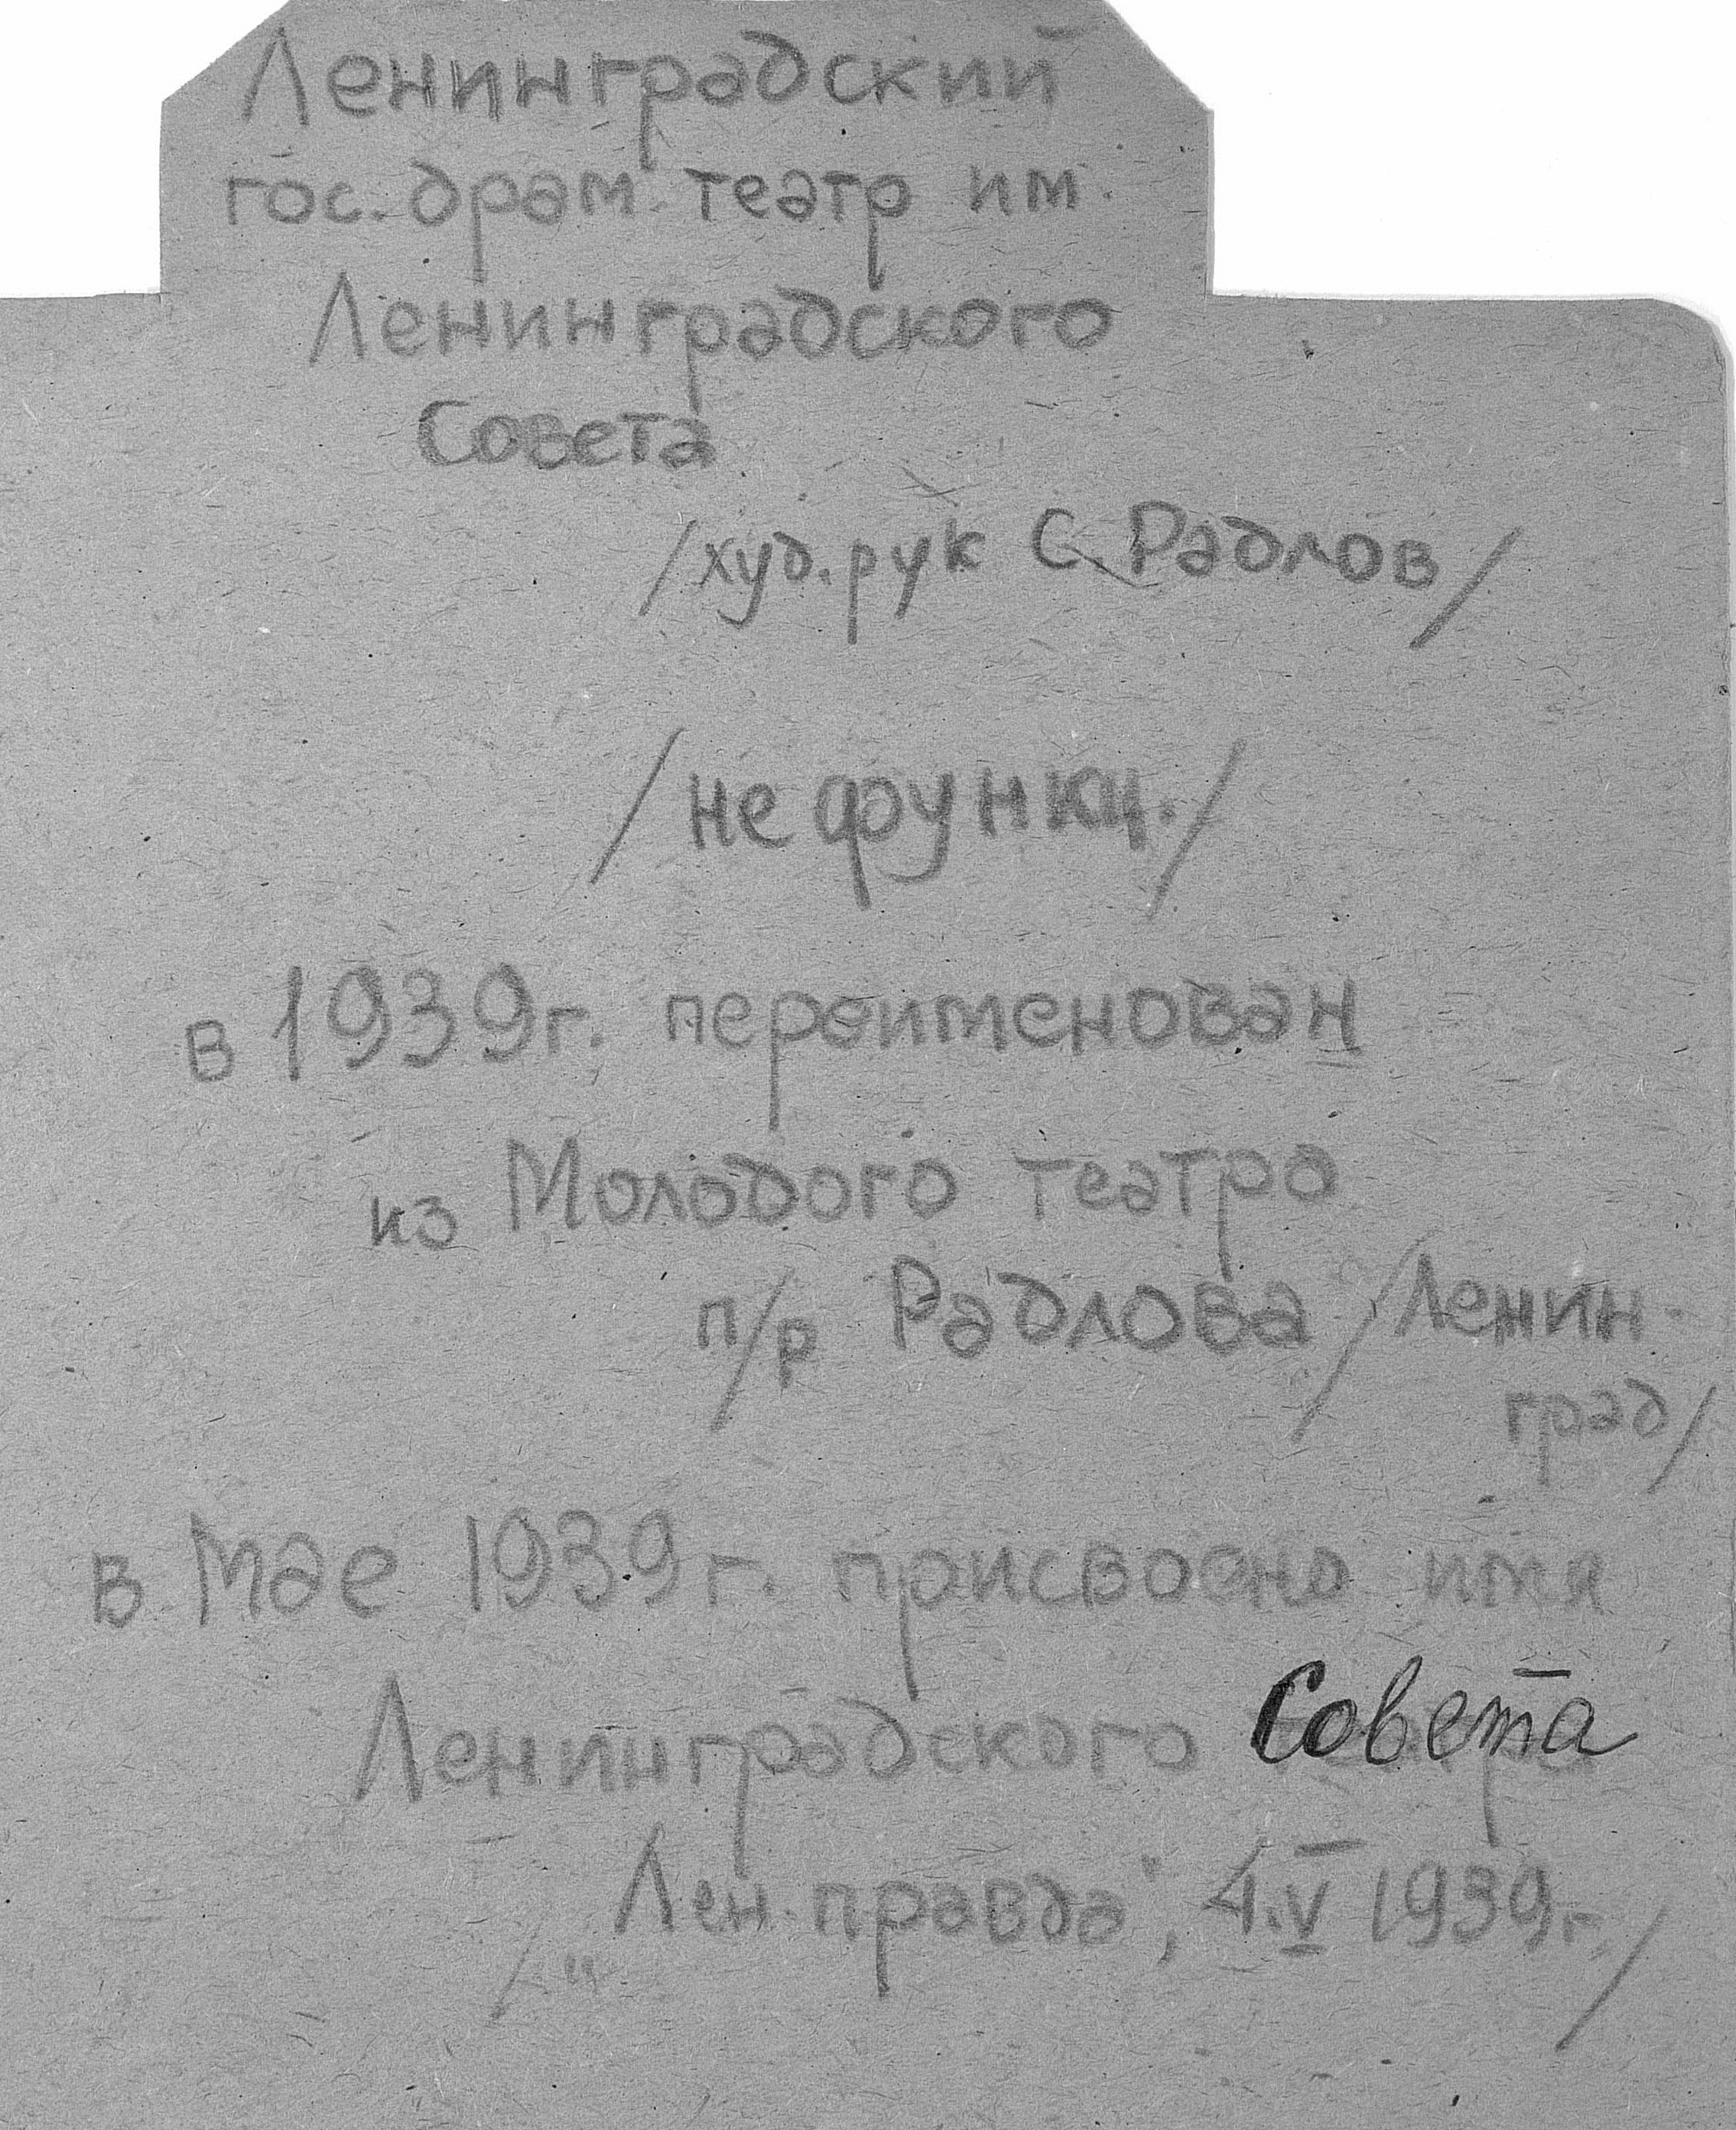 Ленинградский
гос. драм. театр им.
Ленинградского
Совета
/худ. рук С. Радлов/
/не функц./
в 1939г. переименован
из Молодого театра
п/р Радлова /Ленин-
град/
в мае 1939г. присвоено имя
Ленинградского Совета
/„Лен. правда", 4.V 1939г./